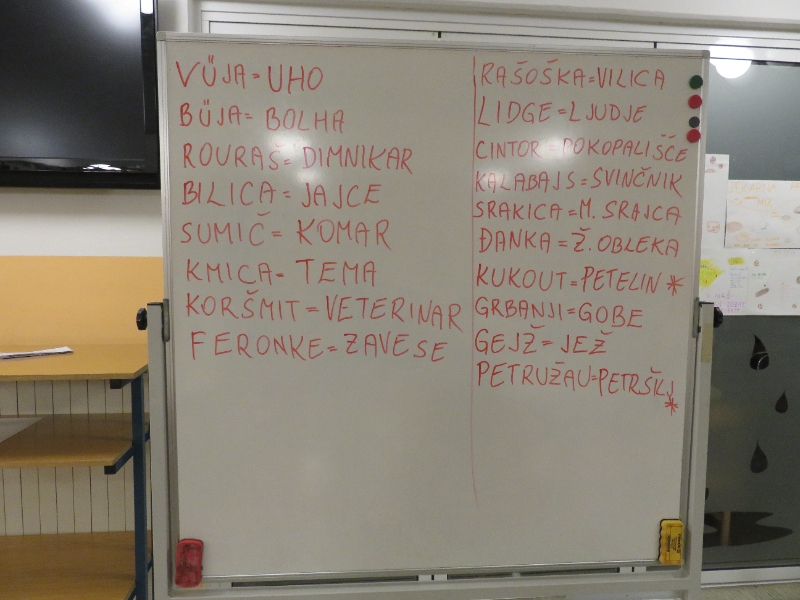 VÜJA=UHO
BÜJA=BOLHA
ROURAŠ=DIMNIKAR
BILICA=JAJCE
SUMIČ=KOMAR
KMICA=TEMA
KORŠMIT=VETERINAR
FERONKE=ZAVESE
RAŠOŠKA=VILICA
LIDGE=LJUDJE
CINTOR=POKOPALIŠČE
KALABAJS=SVINČNIK
SRAKICA=M. SRAJCA
ĐANKA=Ž. OBLEKA
KUKOUT=PETELIN *
GRBANJI=GOBE
GEJŽ=JEŽ
PETRUŽAU=PETRŠILJ
*